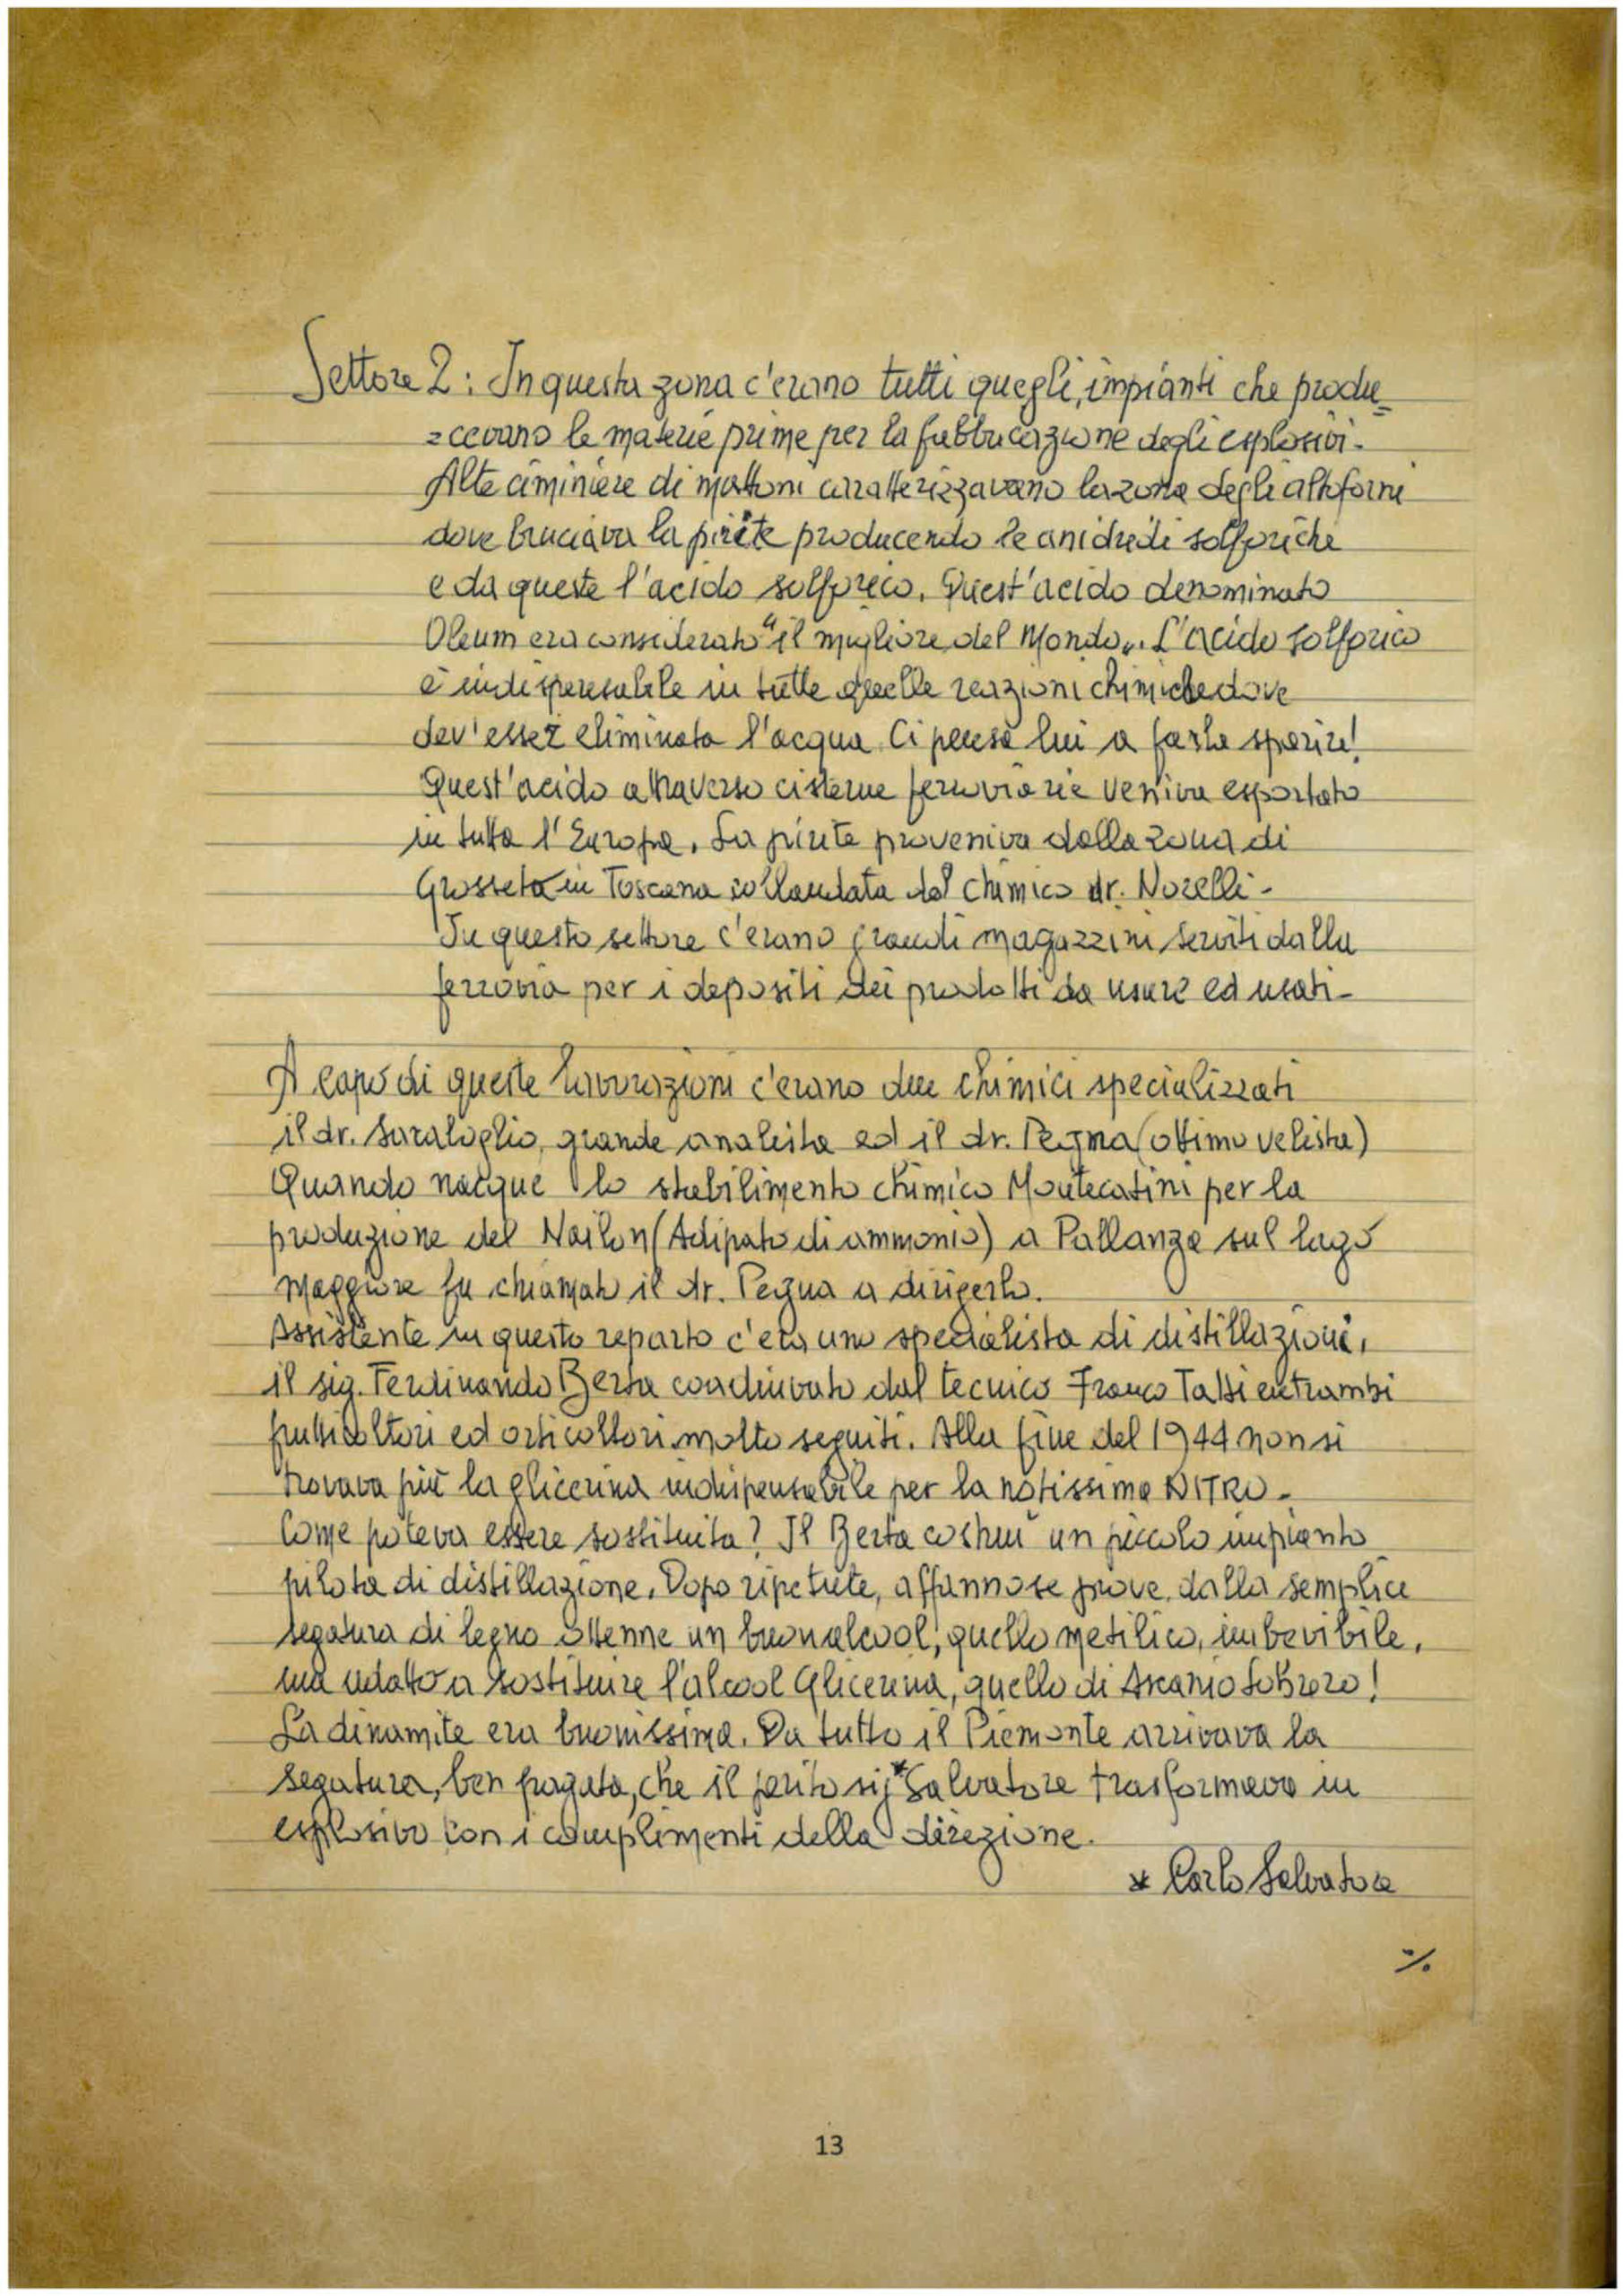 Settore 2: In questa zona c'erano tutti quegli, impianti che produ=
=cevano le materie prime per la fabbricazione degli esplosivi-
Alte ciminiere di mattoni caratterizzavano la zona degli altoforni
dove bruciava la pirite producendo le anidridi solforiche
e da queste l'acido solforico. Quest'acido denominato
Oleum era considerato "il migliore del Mondo". L'acido solforico
è indispensabile in tutte quelle reazioni chimiche dove
dev'esser eliminata l'acqua. Ci pensa lui a farla sparire!
Quest'acido attraverso cisterne ferroviarie veniva esportato
in tutta l'Europa. La pirite proveniva dalla zona di
Grosseto in Toscana collaudata dal chimico dr. Novelli-
In questo settore c'erano grandi magazzini serviti dalla
ferrovia per i depositi dei prodotti da usare ed usati-
A capo di queste lavorazioni c'erano due chimici specializzati
il dr. Saraloglio, grande analista ed il dr. Pegna (ottimo velista)
Quando nacque lo stabilimento chimico Montecatini per la
produzione del Nailon (Adipato di ammonio) a Pallanza sul lago
Maggiore fu chiamato il dr. Pegna a dirigerlo.
Assistente in questo reparto c'era uno specialista di distillazioni,
il sig. Ferdinando Berta coadiuvato dal tecnico Franco entrambi
frutticoltori ed orticoltori molto seguiti. Alla fine del 1944 non si
trovava più la glicerina indispensabile per la notissima NITRO-
Come poteva essere sostituita? Il Berta costruì un piccolo impianto
pilota di distillazione. Dopo ripetute, affannose prove, dalla semplice
segatura di legno ottenne un buon alcool, quello metilico, imbevibile,
ma adatto a sostituire l'alcool Glicerina, quello di Ascanio Sobrero!
La dinamite era buonissima. Da tutto il Piemonte arrivava la
segatura, ben pagata, che il perito sig* Salvatore trasformava in
esplosivo con i complimenti della direzione.
* Carlo Salvatore
./.
13